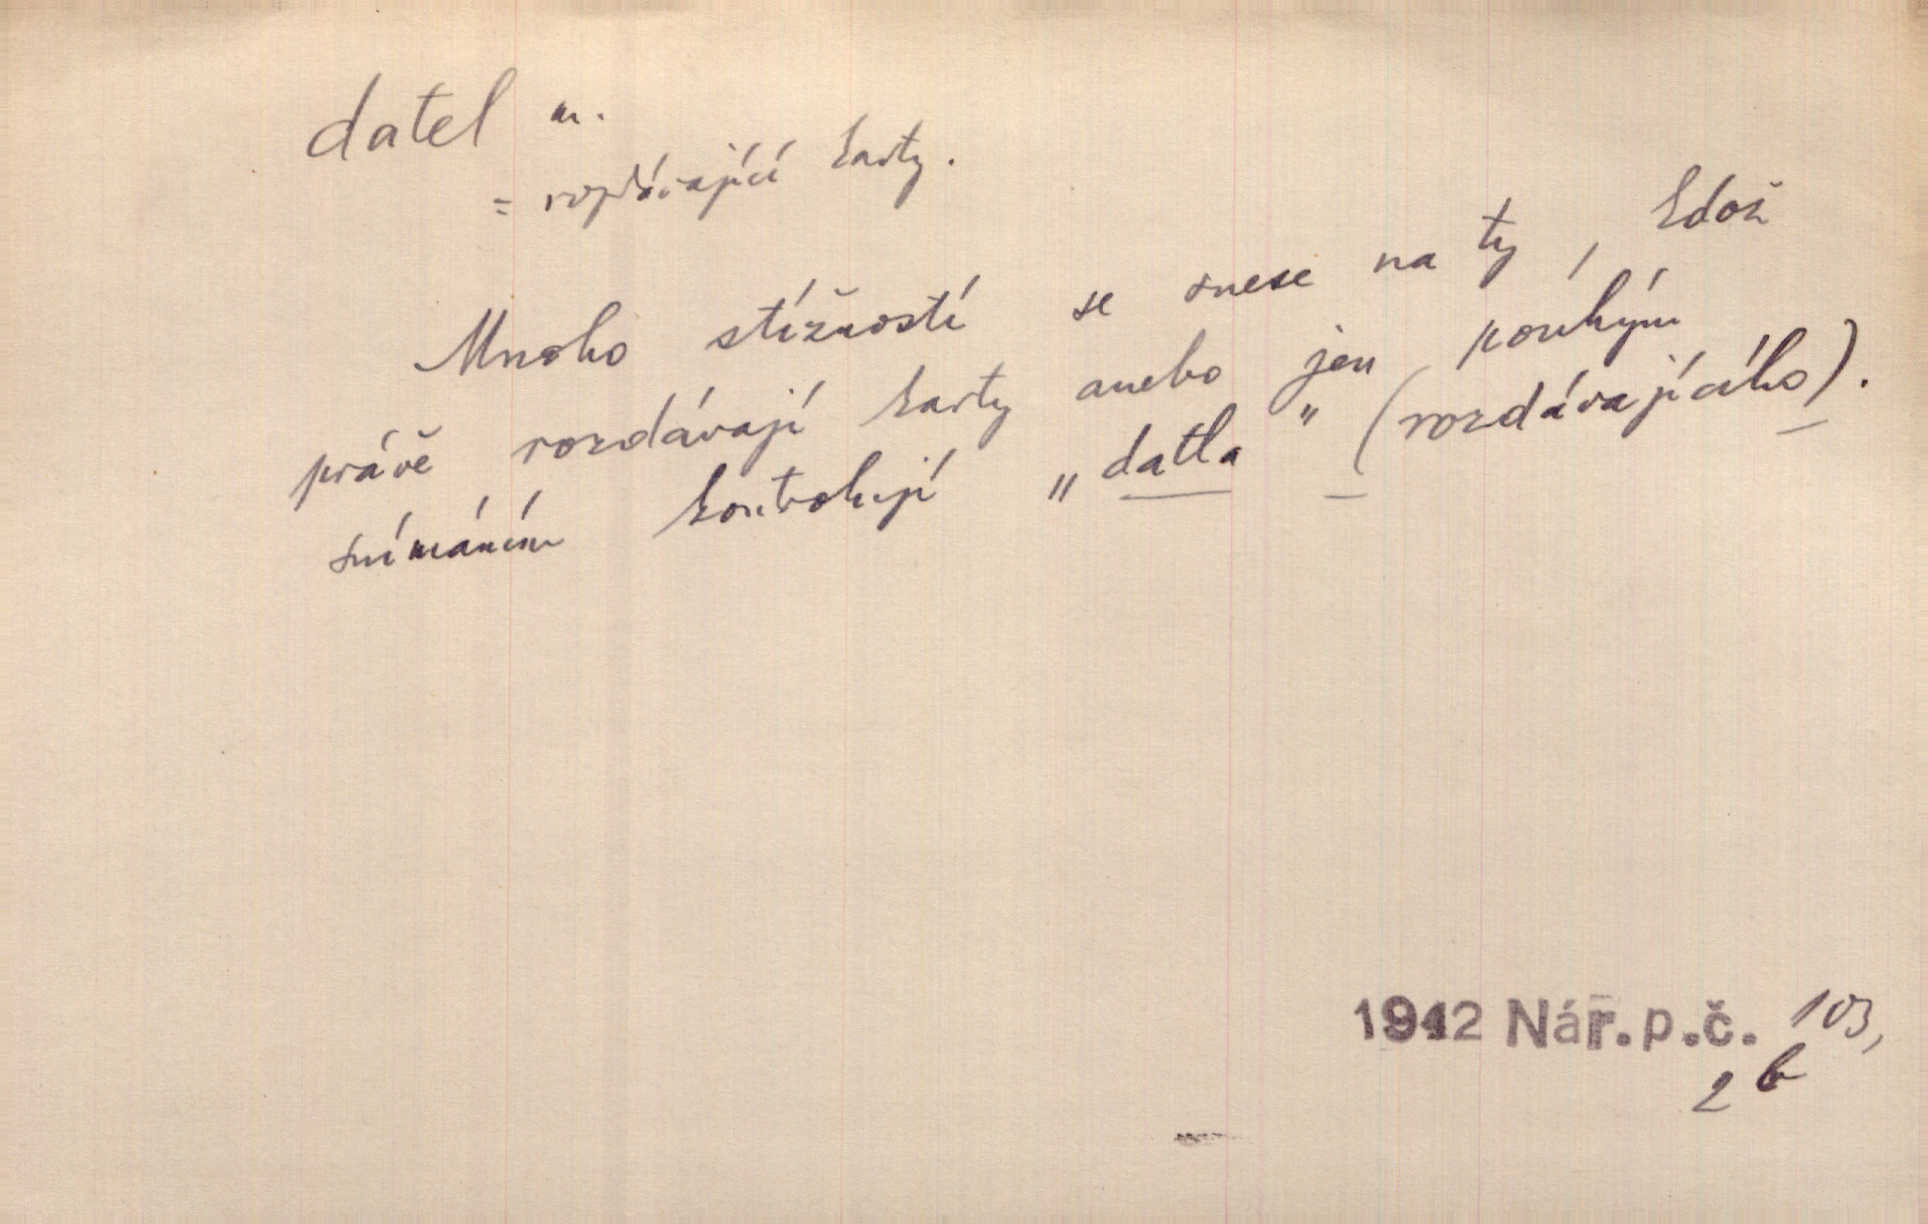 datel m.
= rozdávající karty.
Mnoho stížností se snese na ty, kdož
právě rozdávají karty anebo jen pouhým
snímáním kontrolují „datla" (rozdávajícího).
1942 Nár.p.č. 103,
2b